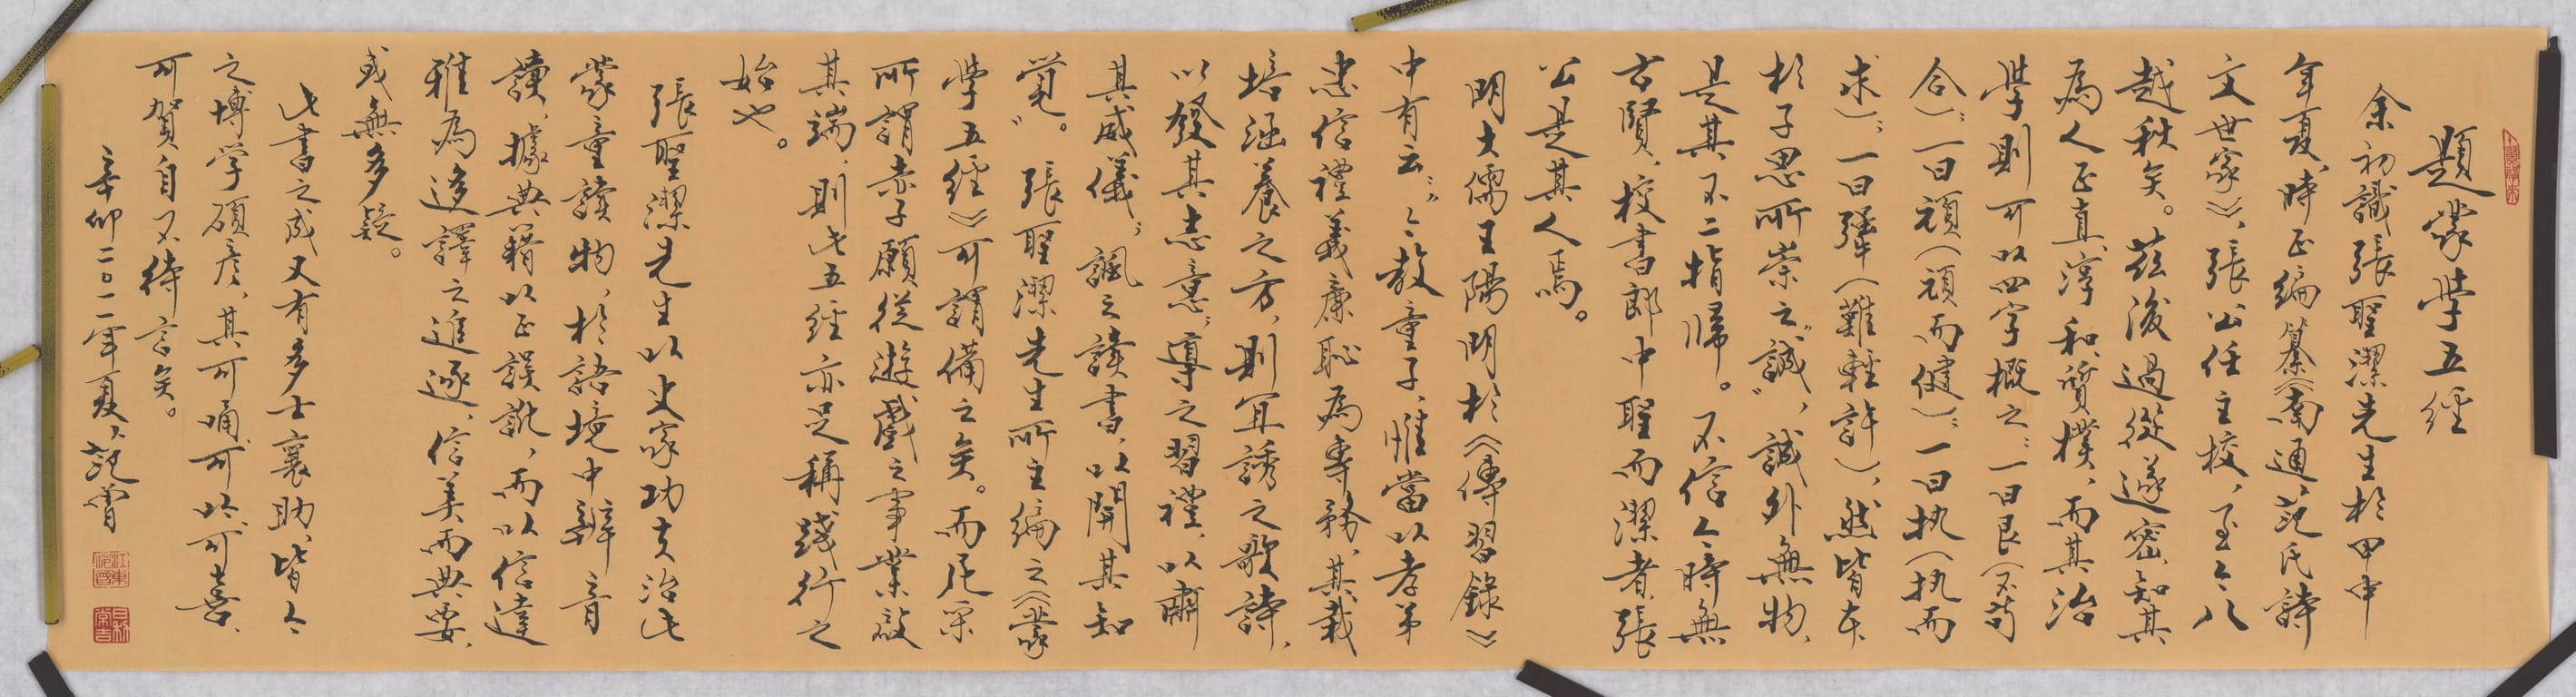 題蒙學五經
余初識張聖潔先生於甲申
年夏，時正編纂《南通范氏詩
文世家》，張公任主校，至今八
越秋矣。茲後過從遂密，知其
為人正直、淳和、質樸，而其治
學則可以四字概之：一曰艮（不苟
合）；一曰頑（頑而健）；一曰执（执而
求）；一曰犟（難輕許），然皆本
於子思所崇之“誠”，誠外無物，
是其不二指歸。不信今時無
古賢，校書郎中聖而潔者，張
公是其人焉。
明大儒王陽明於《傳習錄》
中有云：“今教童子，惟當以孝弟
忠信禮義廉恥為專務，其栽
培涵養之方，則宜誘之歌詩，
以發其志意；導之習禮，以肅
其威儀；諷之讀書，以開其知
覺”。張聖潔先生所主編之《蒙
學五經》可謂備之矣。而凡案
所謂赤子願從遊戲之事業啟
其端，則此五經亦足稱踐行之
始也。
張聖潔先生以史家功夫治此
蒙童讀物，於語境中辨音
讀，據典籍以正誤訛，而以信達
雅為逐譯之進逐，信美而典要，
或無多疑。
此書之成又有多士襄助，皆今
之博学碩彦，其可诵、可以、可喜、
可賀自不待言矣。
辛卯二〇一一年夏，范曾